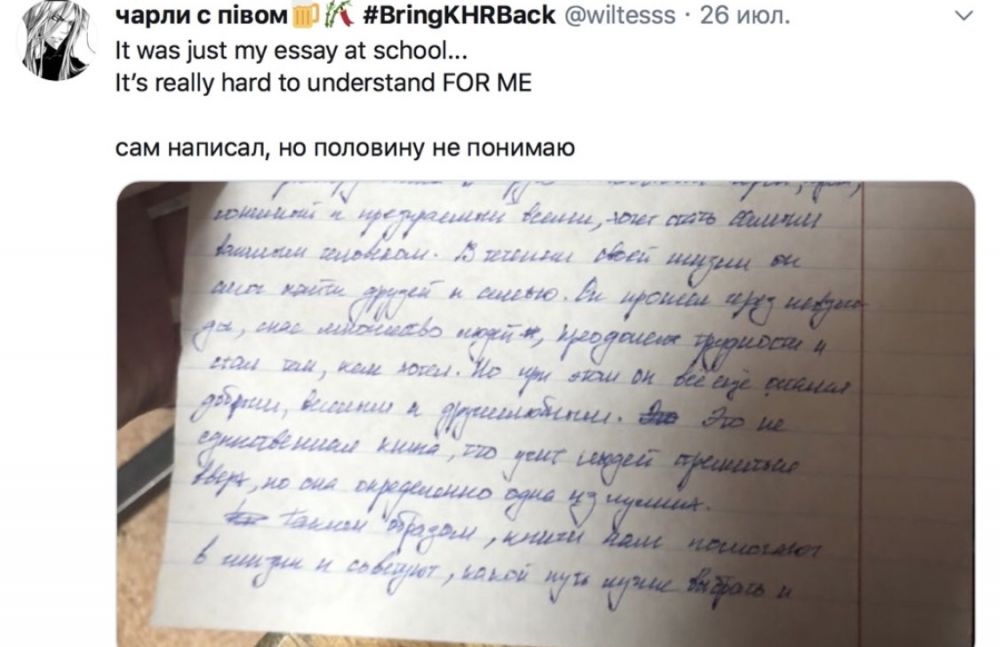 чарли с півом🍺🎋 #BringKHRBack @wiltesss · 26 июл.
It was just my essay at school...
It’s really hard to understand FOR ME
сам написал, но половину не понимаю
и презираемый всеми, хочет стать
важным человеком. В течении своей жизни он
смог найти друзей и семью. Он прошел через невзго-
ды, спас множество людей, преодолел трудности и
стал тем, кем хотел. Но при этом он всё ещё остался
добрым, веселым и дружелюбным. Это не
единственная книга, что учит людей стремиться
вверх, но она определенно одна из лучших.
Таким образом, книги нам помогают
в жизни и советуют, какой путь лучше выбрать и